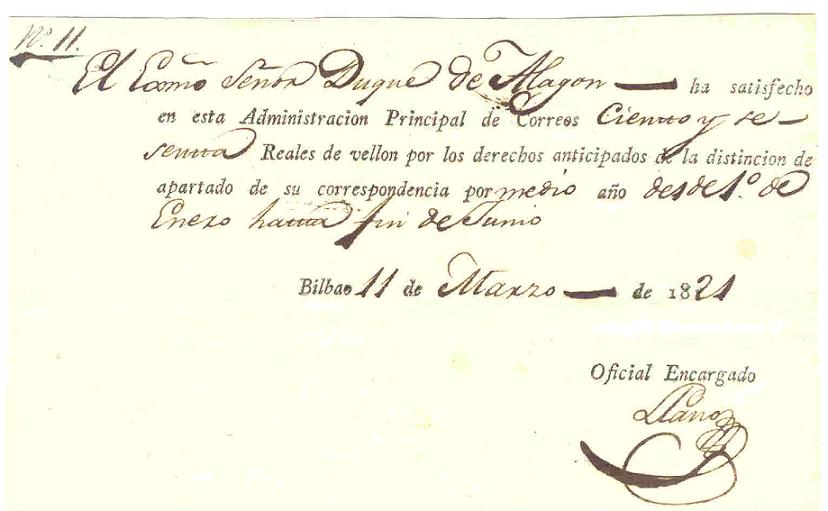 Nº 11.
El Exmo Señor Duque de Alagon — ha satisfecho
en esta Administracion Principal de Correos Ciento y se-
senta Reales de vellon por los derechos anticipados de la distincion de
apartado de su correspondencia por medio año desde 1º. de
Enero hasta fin de Junio
Bilbao 11 de Marzo — de 1821
Oficial Encargado
Llano